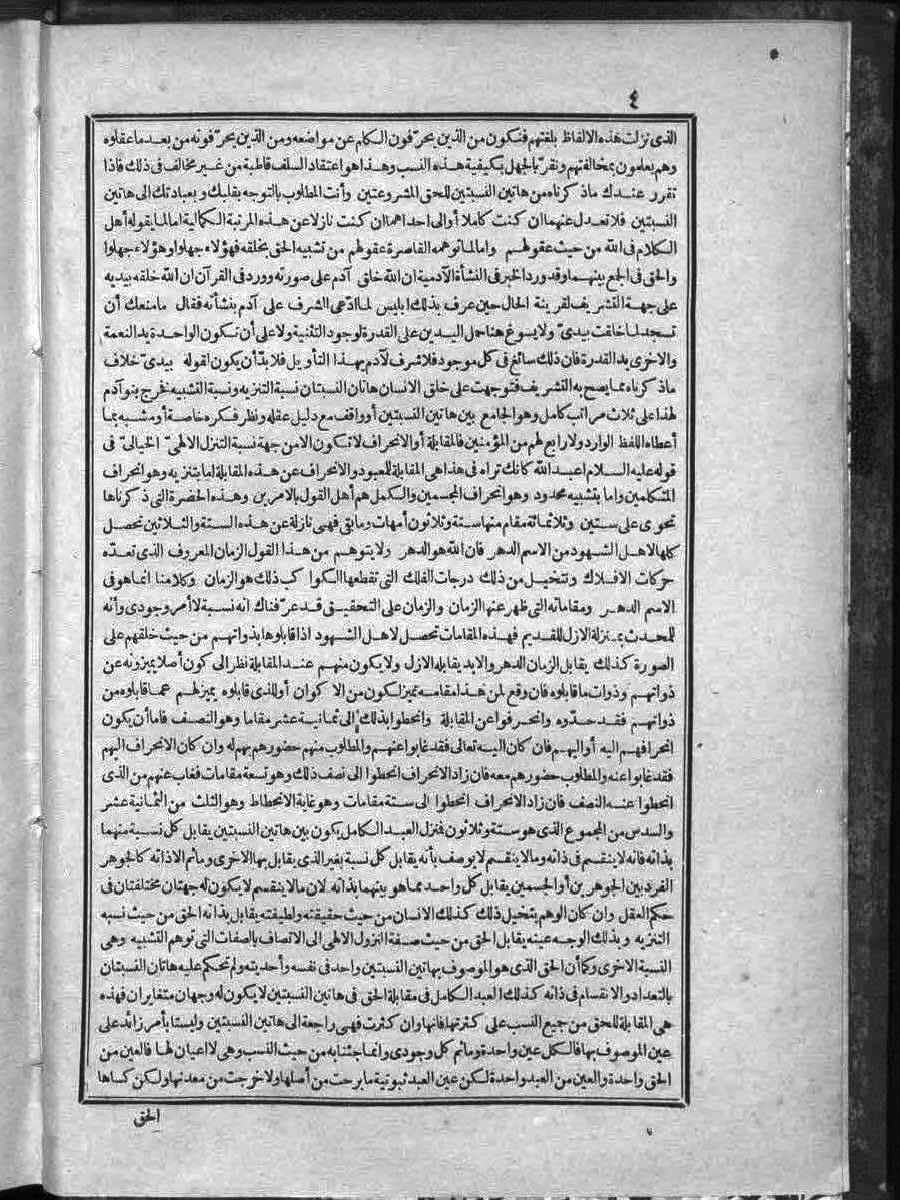 ٤
الذى نزلت هذه الالفاظ بلغتهم فنكون من الذين يحرّفون الكلم عن مواضعه ومن الذين يحرّفونه من بعد ما عقلوه
وهم يعلمون بمخالفتهم ونقرّ بالجهل بكيفية هذه النسب وهذا هو اعتقاد السلف قاطبة من غير مخالف فى ذلك فاذا
تقرر عندك ماذكرناه من هاتين النسبتين للحق المشروعتين وأنت المطلوب بالتوجه بقلبك وبعبادتك الى هاتين
النسبتين فلا تعدل عنهما ان كنت كاملا أو الى احداهما ان كنت نازلا عن هذه المرتبة الكمالية اما لما يقوله أهل
الكلام فى الله من حيث عقولهم واما لما توهمه القاصرة عقولهم من تشبيه الحق بخلقه فهؤلاء جهلوا وهؤلاء جهلوا
والحق فى الجمع بينهما وقد ورد الخبر فى النشأة الآدمية ان الله خلق آدم على صورته وورد فى القرآن ان الله خلقه بيديه
على جهة التشريف لقرينة الحال حين عرف بذلك ابليس لما ادّعى الشرف على آدم بنشأته فقال مامنعك أن
تسجد لما خلقت بيدىّ ولا يسوغ هنا حمل اليدين على القدرة لوجود التثنية ولا على أن تكون الواحدة يد النعمة
والاخرى يد القدرة فان ذلك سائغ فى كل موجود فلا شرف لآدم بهذا التأويل فلا بدّ أن يكون لقوله بيدىّ خلاف
ماذكرناه مما يصح به التشريف فتوجهت على خلق الانسان هاتان النسبتان نسبة التنزيه ونسبة التشبيه نخرج بنو آدم
لهذا على ثلاث مراتب كامل وهو الجامع بين هاتين النسبتين أو واقف مع دليل عقله ونظر فكره خاصة أو مشبه بما
أعطاه اللفظ الوارد ولا رابع لهم من المؤمنين فالمقابلة أو الانحراف لا تكون الا من جهة نسبة التنزل الالهىّ الخيالىّ فى
قوله عليه السلام اعبد الله كانك تراه فى هذا هى المقابلة للمعبود والانحراف عن هذه المقابلة اما بتنزيه وهو انحراف
المتكلمين واما بتشبيه محدود وهو انحراف المجسمين والكمل هم أهل القول بالامرين وهذه الحضرة التى ذكرناها
تحوى على ستين وثلاثمائة مقام منها ستة وثلاثون أمهات ومابقى فهى نازلة عن هذه الستة والثلاثين تحصل
كلها لاهل الشهود من الاسم الدهر فان الله هو الدهر ولا يتوهم من هذا القول الزمان المعروف الذى تعدّه
حركات الافلاك وتتخيل من ذلك درجات الفلك التى تقطعها الكواكب ذلك هو الزمان وكلامنا انما هو فى
الاسم الدهر ومقاماته التى ظهر عنها الزمان والزمان على التحقيق قد عرّفناك انه نسبة لا أمر وجودى وأنه
للمحدث بمنزلة الازل للقديم فهذه المقامات تحصل لاهل الشهود اذا قابلوها بذواتهم من حيث خلقهم على
الصورة كذلك يقابل الزمان الدهر والابد يقابله الازل ولا يكون منهم عند المقابلة نظر الى كون أصلا يميزونه عن
ذواتهم وذوات ماقابلوه فان وقع لمن هذا مقامه تميز لكون من الاكوان أو للذى قابلوه يميزلهم عما قابلوه من
ذواتهم فقد حدّوه وانحرفوا عن المقابلة وانحطوا بذلك الى ثمانية عشر مقاما وهو النصف فاما أن يكون
انحرافهم اليه أو اليهم فان كان اليه تعالى فقد غابوا عنهم والمطلوب منهم حضورهم بهم له وان كان الانحراف اليهم
فقد غابوا عنه والمطلوب حضورهم معه فان زاد الانحراف انحطوا الى نصف ذلك وهو تسعة مقامات فغاب عنهم من الذى
انحطوا عنه النصف فان زاد الانحراف انحطوا الى ستة مقامات وهو غاية الانحطاط وهو الثلث من الثمانية عشر
والسدس من المجموع الذى هو ستة وثلاثون فنزل العبد الكامل يكون بين هاتين النسبتين يقابل كل نسبة منهما
بذاته فانه لا ينقسم فى ذاته ومالا ينقسم لا يوصف بأنه يقابل كل نسبة بغير الذى يقابل بها الاخرى وماثم الا ذاته كالجوهر
الفرد بين الجوهرين أو الجسمين يقابل كل واحد مما هو بينهما بذاته لان مالا ينقسم لا يكون له جهتان مختلفتان فى
حكم العقل وان كان الوهم يتخيل ذلك كذلك الانسان من حيث حقيقته ولطيفته يقابل بذاته الحق من حيث نسبة
التنزيه وبذلك الوجه عينه يقابل الحق من حيث صفة النزول الالهى الى الاتصاف بالصفات التى توهم التشبيه وهى
النسبة الاخرى وكما أن الحق الذى هو الموصوف بهاتين النسبتين واحد فى نفسه وأحديته ولم تحكم عليه هاتان النسبتان
بالتعداد والانقسام فى ذاته كذلك العبد الكامل فى مقابلة الحق فى هاتين النسبتين لا يكون له وجهان متغايران فهذه
هى المقابلة للحق من جميع النسب على كثرتها فانها وان كثرت فهى راجعة الى هاتين النسبتين وليستا بأمر زائد على
عين الموصوف بها فالكل عين واحدة وماثم كل وجودى وانما جئنا به من حيث النسب وهى لا اعيان لها فالعين من
الحق واحدة والعين من العبد واحدة لكن عين العبد ثبوتية مابرحت من أصلها ولا خرجت من معدنها ولكن كساها
الحق